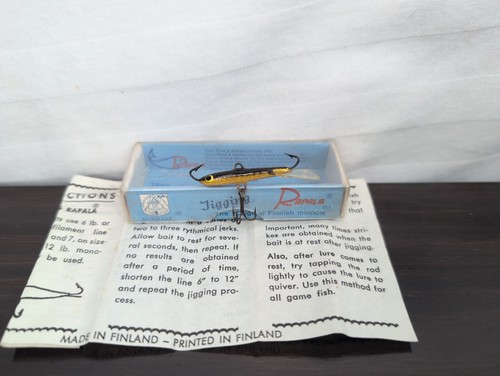 Jigging RAPALA
Finnish minnow
CTIONS
RAPALA
ts use 6 lb. or
filament line
and 7, on size
12 lb. mono-
be used.
two to three rythmical jerks.
Allow bait to rest for seve-
ral seconds, then repeat. If
no results are obtained
after a period of time,
shorten the line 6" to 12"
and repeat the jigging pro-
cess.
try
that
Important, many times stri-
kes are obtained when the
bait is at rest after jigging.
Also, after lure comes to
rest, try tapping the rod
lightly to cause the lure to
quiver. Use this method for
all game fish.
MADE IN FINLAND – PRINTED IN FINLAND